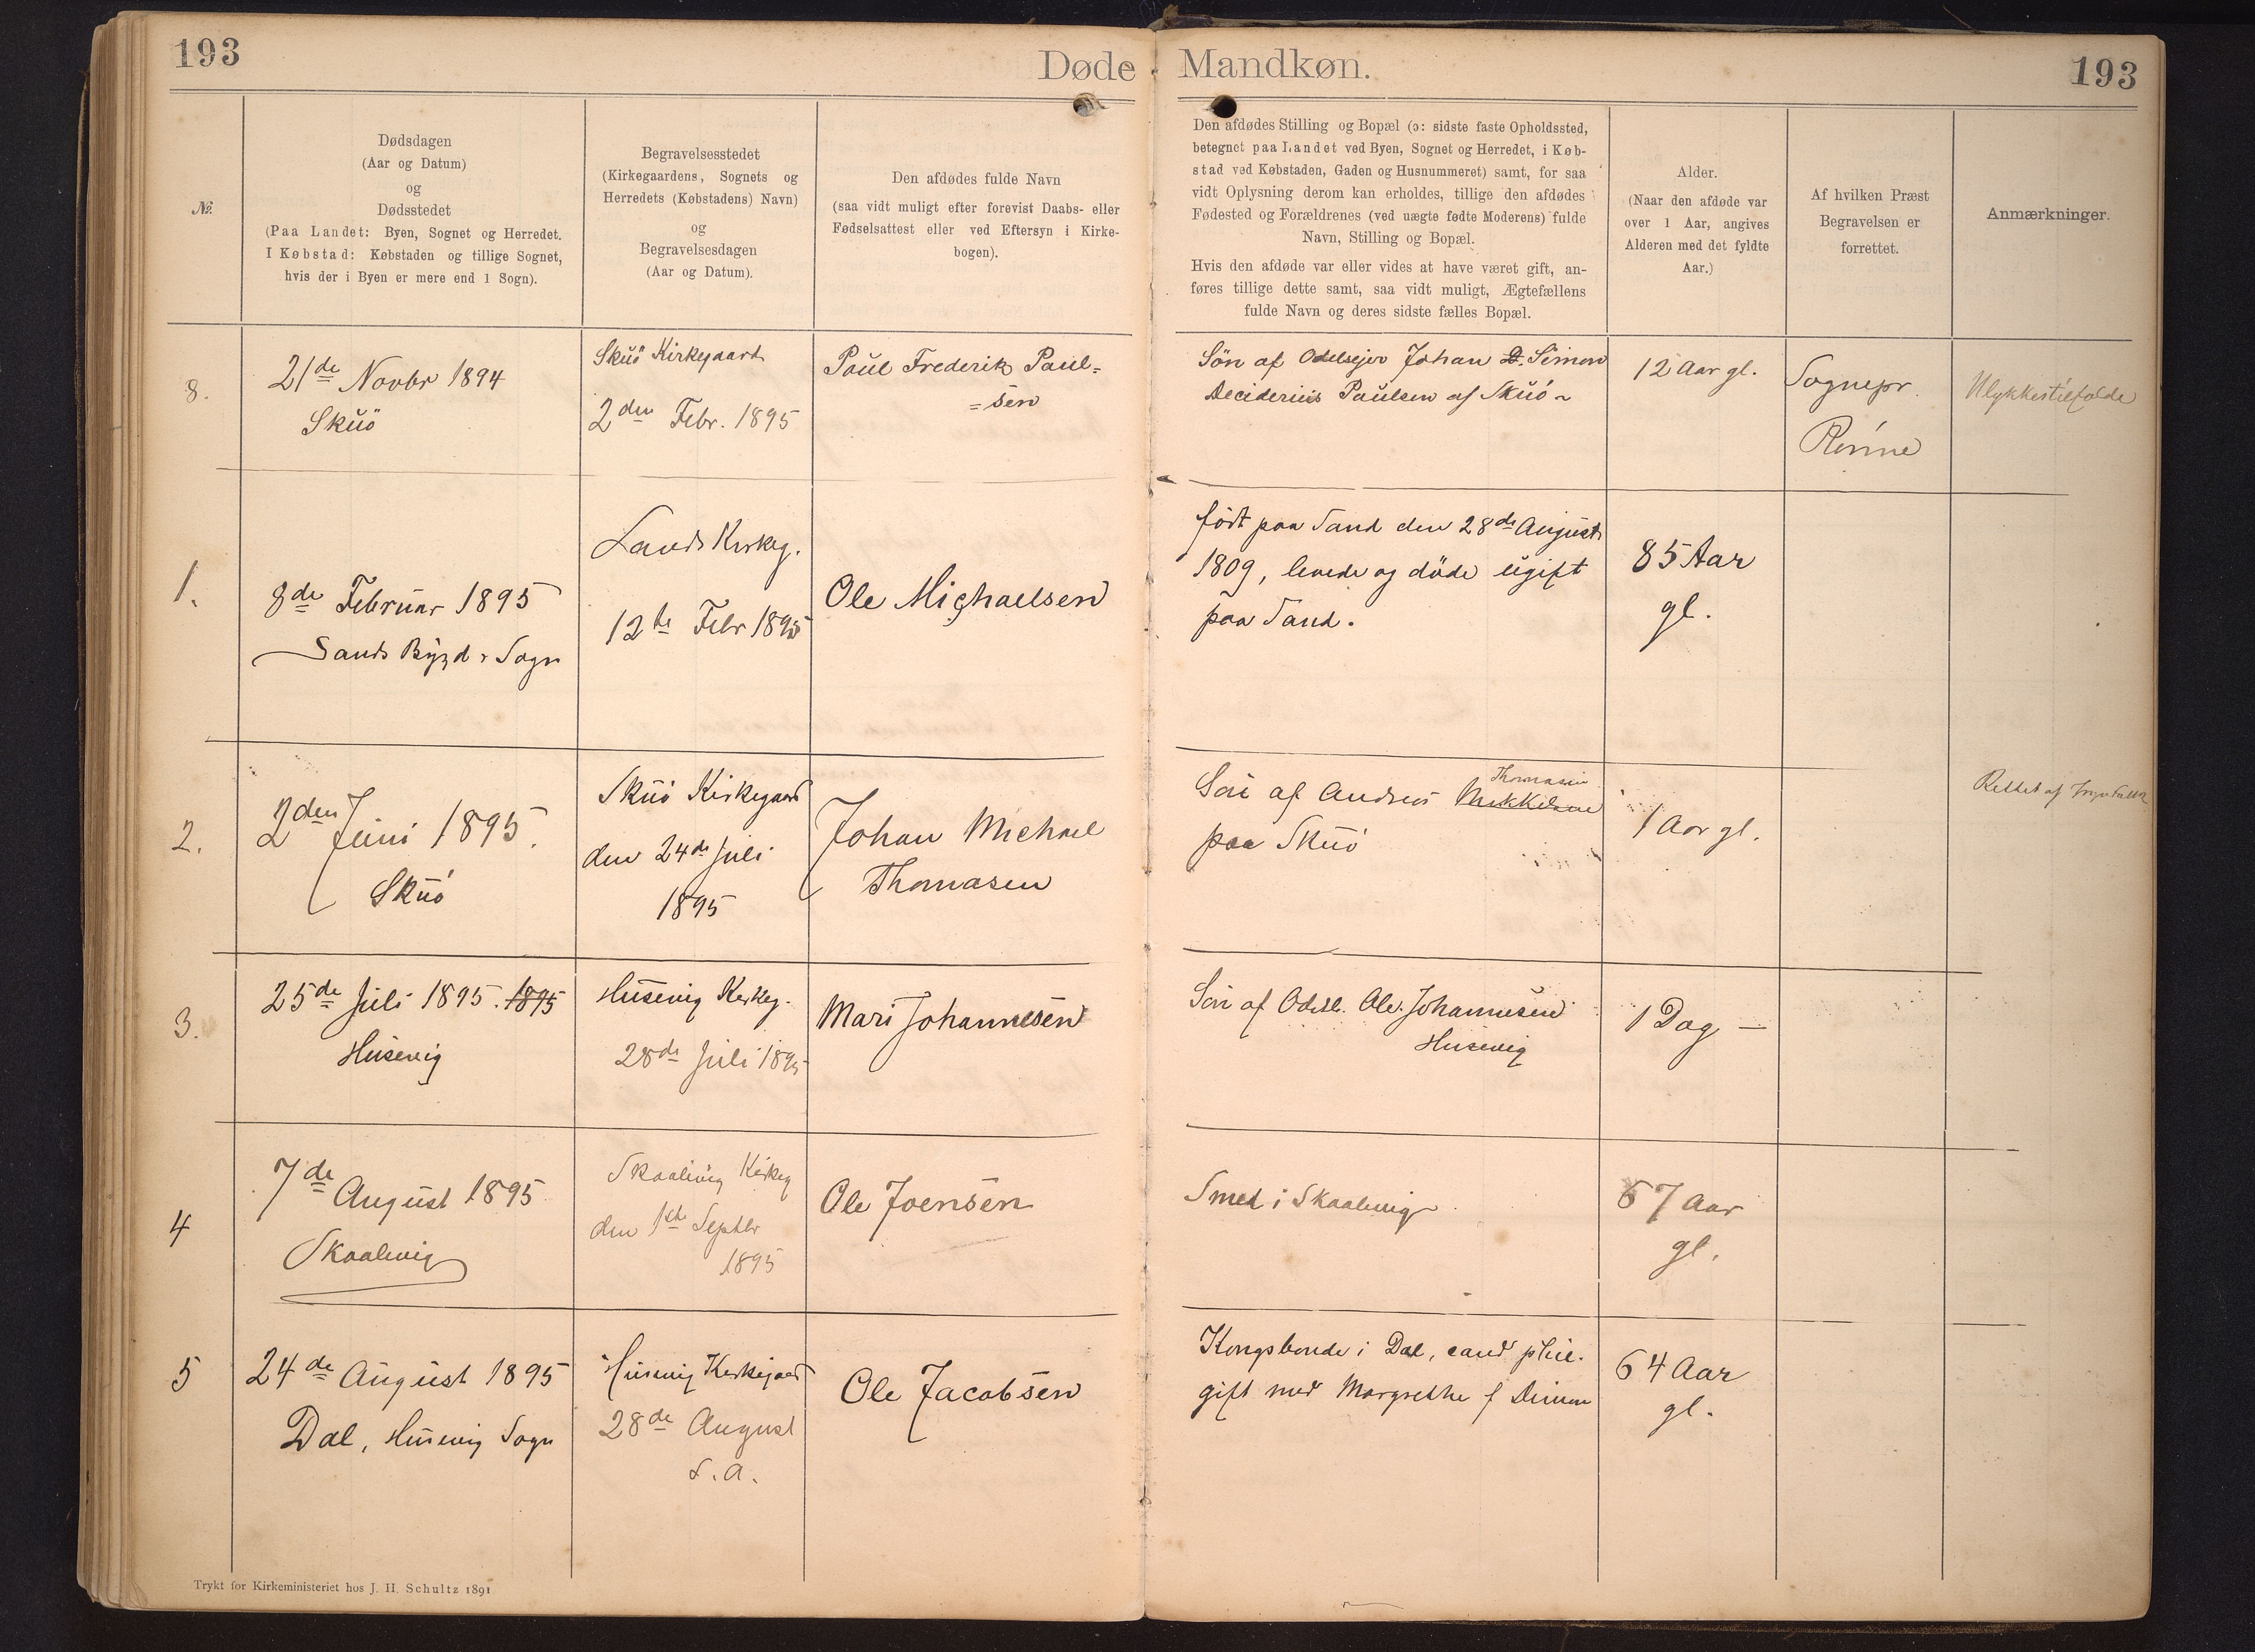 193
Døde
Mandkøn.
193
№.
Dødsdagen
(Aar og Datum)
og
Dødsstedet
(Paa Landet: Byen, Sognet og Herredet.
I Købstad: Købstaden og tillige Sognet,
hvis der i Byen er mere end 1 Sogn).
Begravelsesstedet
(Kirkegaardens, Sognets og
Herredets (Købstadens) Navn)
og
Begravelsesdagen
(Aar og Datum).
Den afdødes fulde Navn
(saa vidt muligt efter forevist Daabs- eller
Fødselsattest eller ved Eftersyn i Kirke-
bogen).
Den afdødes Stilling og Bopæl (ɔ: sidste faste Opholdssted,
betegnet paa Landet ved Byen, Sognet og Herredet, i Køb-
stad ved Købstaden, Gaden og Husnummeret) samt, for saa
vidt Oplysning derom kan erholdes, tillige den afdødes
Fødested og Forældrenes (ved uægte fødte Moderens) fulde
Navn, Stilling og Bopæl.
Hvis den afdøde var eller vides at have været gift, an-
føres tillige dette samt, saa vidt muligt, Ægtefællens
fulde Navn og deres sidste fælles Bopæl.
Alder.
(Naar den afdøde var
over 1 Aar, angives
Alderen med det fyldte
Aar.)
Af hvilken Præst
Begravelsen er
forrettet.
Anmærkninger.
8.
21de Novbr 1894
Skuö
Skuö Kirkegaard
2den Febr. 1895
Paul Frederik Paul=
=sen
Søn af Odelsejer Johan D. Simon
Deciderius Paulsen af Skuö
12 Aar gl.
Sognepr.
Rønne
Ulykkestilfælde
1.
8de Februar 1895
Sands Bygd & Sogn
Sands Kirkeg.
12te Febr 1895
Ole Michaelsen
født paa Sand den 28de August
1809, levede og döde ugift
paa Sand.
85 Aar
gl.
2.
2den Juni 1895.
Skuö
Skuö Kirkegaard
den 24de Juli
1895
Johan Michael
Thomasen
Thomasin
Søn af Andreas Mikkelsen
paa Skuö
1 Aar gl.
Rettet af
3.
25de Juli 1895. 1895
Husevig
Husevig Kirkeg.
28de Juli 1895
Mari Johannesen
Søn af Odelsb. Ole Johannesen
Husevig
1 Dag —
4
7de August 1895
Skaalevig
Skaalevig Kirkeg
den 1ste Septbr
1895
Ole Joensen
Smed i Skaalevig
67 Aar
gl.
5
24de August 1895
Dal, Husevig Sogn
Husevig Kirkegaard
28de August
s. a.
Ole Jacobsen
Kongsbonde i Dal, cand phil.
gift med Margrethe f Dimon
64 Aar
gl.
Trykt for Kirkeministeriet hos J. H. Schultz 1891